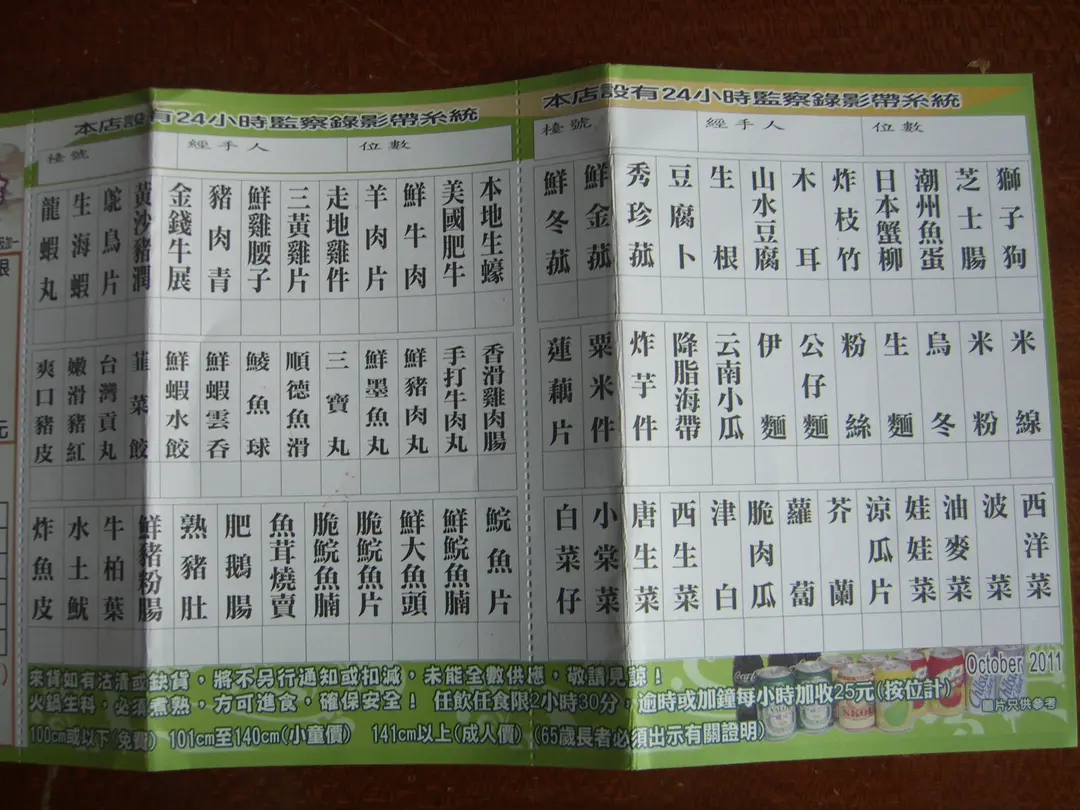 本店設有24小時監察錄影帶系統
檯號
經手人
位數
本地生蠔
美國肥牛
鮮牛肉
羊肉片
走地雞件
三黃雞片
鮮雞腰子
豬肉青
金錢牛展
黃沙豬潤
鴕鳥片
生海蝦
龍蝦丸
香滑雞肉腸
手打牛肉丸
鮮豬肉丸
鮮墨魚丸
三寶丸
順德魚滑
鯪魚球
鮮蝦雲吞
鮮蝦水餃
韮菜餃
台灣貢丸
嫩滑豬紅
爽口豬皮
鯇魚片
鮮鯇魚腩
鮮大魚頭
脆鯇魚片
脆鯇魚腩
魚茸燒賣
肥鵝腸
熟豬肚
鮮豬粉腸
牛柏葉
水土魷
炸魚皮
本店設有24小時監察錄影帶系統
檯號
經手人
位數
獅子狗
芝士腸
潮州魚蛋
日本蟹柳
炸枝竹
木耳
山水豆腐
生根
豆腐卜
秀珍菰
鮮金菰
鮮冬菰
米線
米粉
烏冬
生麵
粉絲
公仔麵
伊麵
云南小瓜
降脂海帶
炸芋件
粟米件
蓮藕片
西洋菜
波菜
油麥菜
娃娃菜
涼瓜片
芥蘭
蘿蔔
脆肉瓜
津白
西生菜
唐生菜
小棠菜
白菜仔
來貨如有沽清或缺貨，將不另行通知或扣減，未能全數供應，敬請見諒！
火鍋生料，必須煮熟，方可進食，確保安全！ 任飲任食限2小時30分，逾時或加鐘每小時加收25元(按位計)
100cm或以下(免費) 101cm至140cm(小童價) 141cm以上(成人價) (65歲長者必須出示有關證明)
October 2011
圖片只供參考